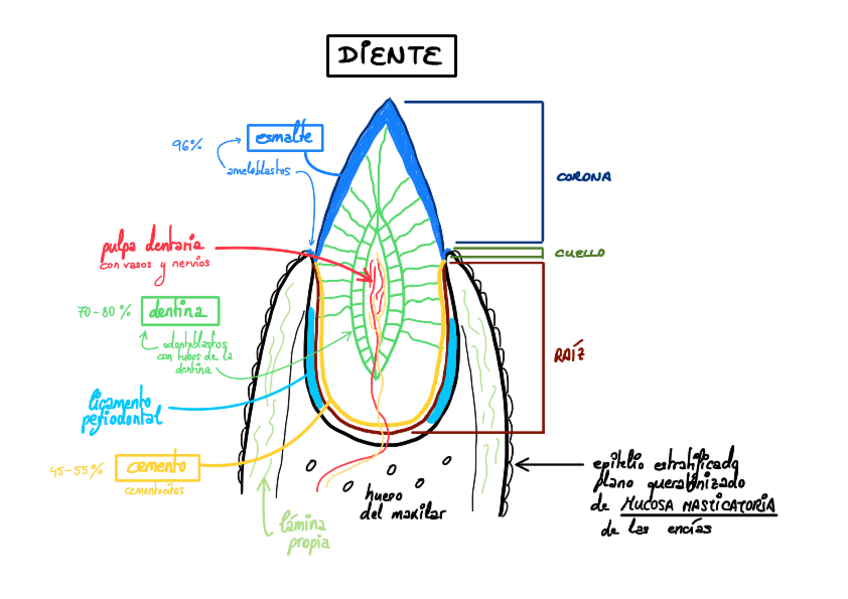 DIENTE
96%
esmalte
ameloblastos
CORONA
pulpa dentaria
con vasos y nervios
CUELLO
70-80%
dentina
odontoblastos
con tubos de la
dentina
RAÍZ
ligamento
periodontal
45-55%
cemento
cementocitos
hueso
del maxilar
lámina
propia
epitelio estratificado
plano queratinizado
de MUCOSA MASTICATORIA
de las encías